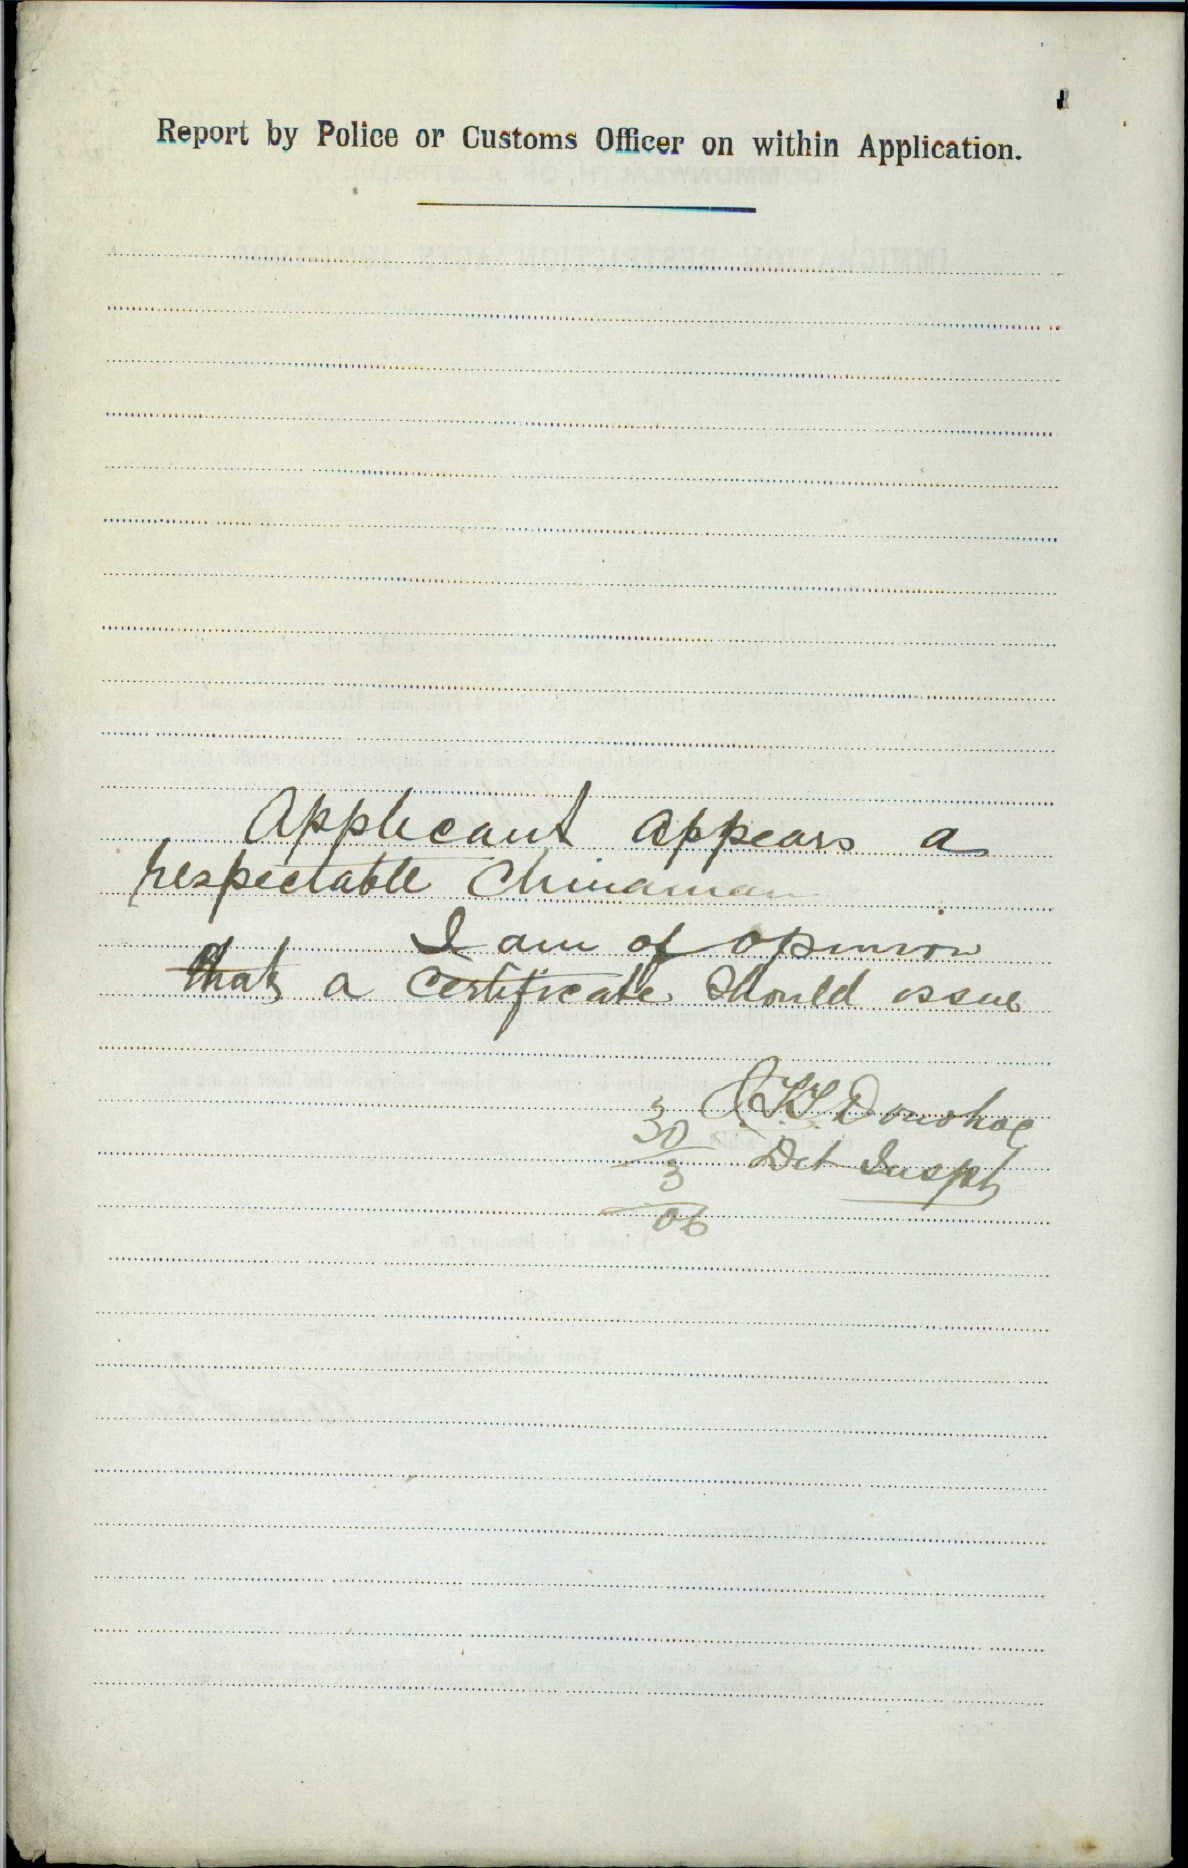 Report by Police or Customs Officer on within Application.
Applicant appears a
respectable Chinaman
I am of opinion
that a certificate should issue
Donohoe
30
3
06
Det Inspt